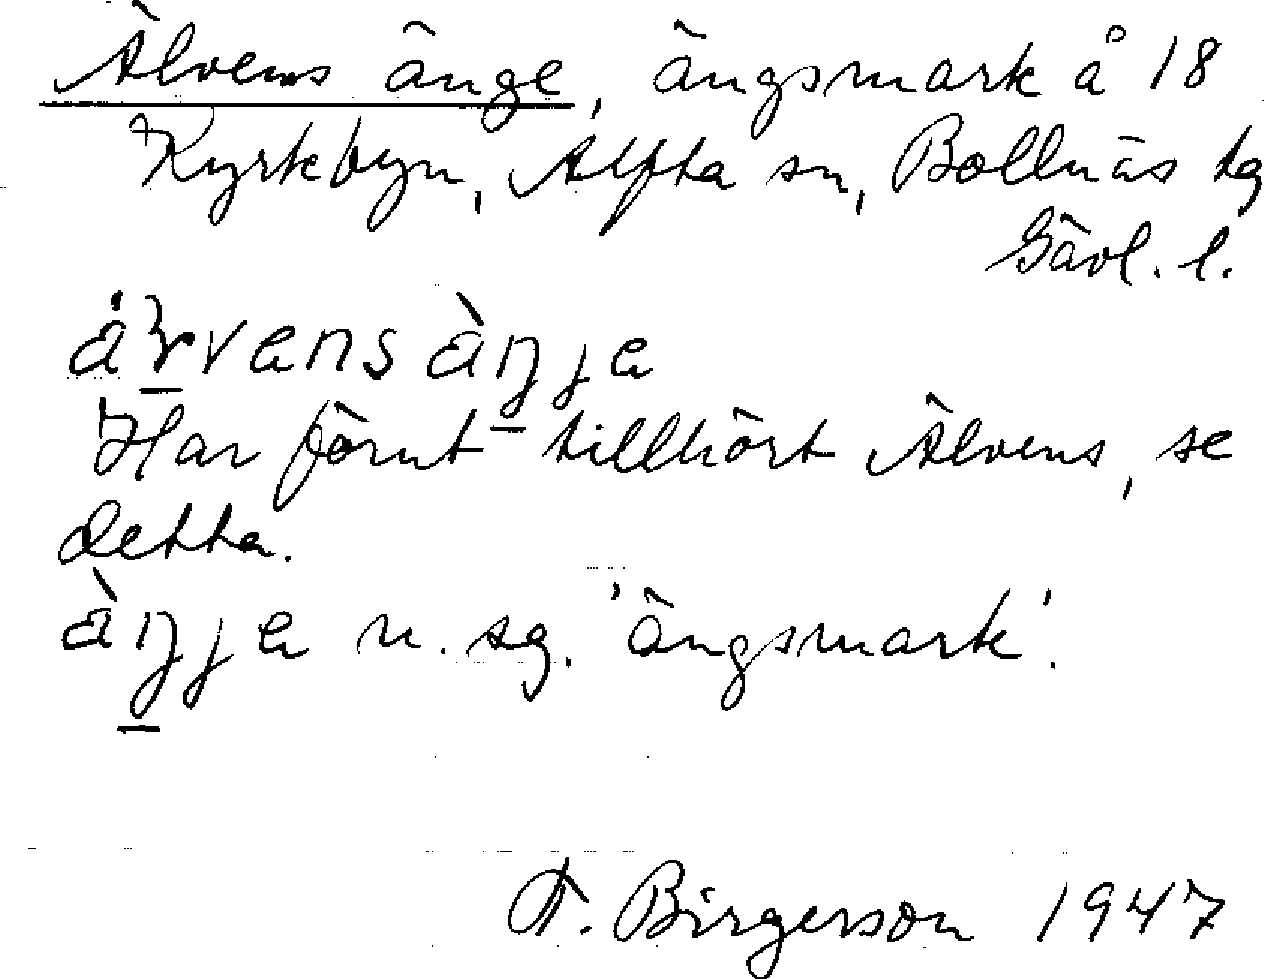 Älvens änge, ängsmark å 18
Kyrkbyn, Alfta sn, Bollnäs tg
Gävl. l.
ä̀ɽvens ä̀ŋje
Har förut tillhört Älvens, se
detta.
ä̀ŋje n. sg. 'ängsmark'.
T. Birgerson 1947